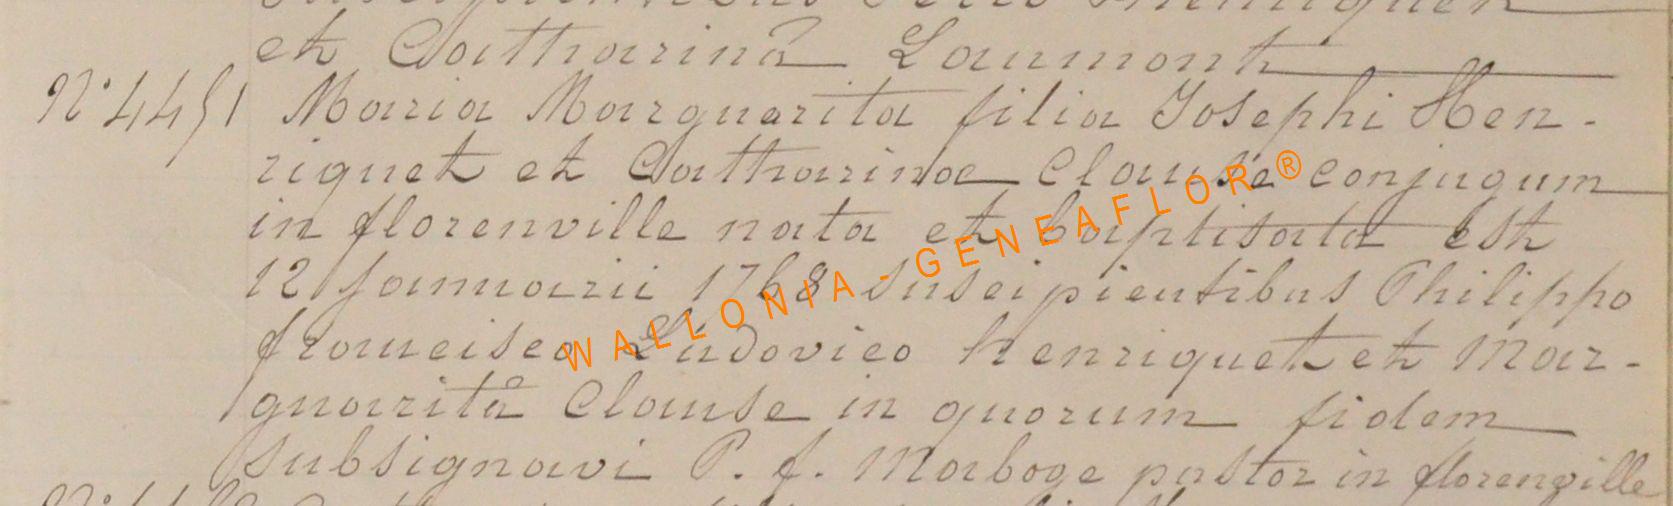 et Catharinâ Laurmont
N° 4451 Maria Marguarita filia Josephi Hen-
riquet et Catharinae Clause conjugum
in florenville nata et baptisata est
12 Januarii 1768 suscipientibus Philippo
francisco Ludovico henriquet et Mar-
guaritâ Clause in quorum fidem
subsignavi P. f. Marboge pastor in florenville
WALLONIA-GENEAFLOR®